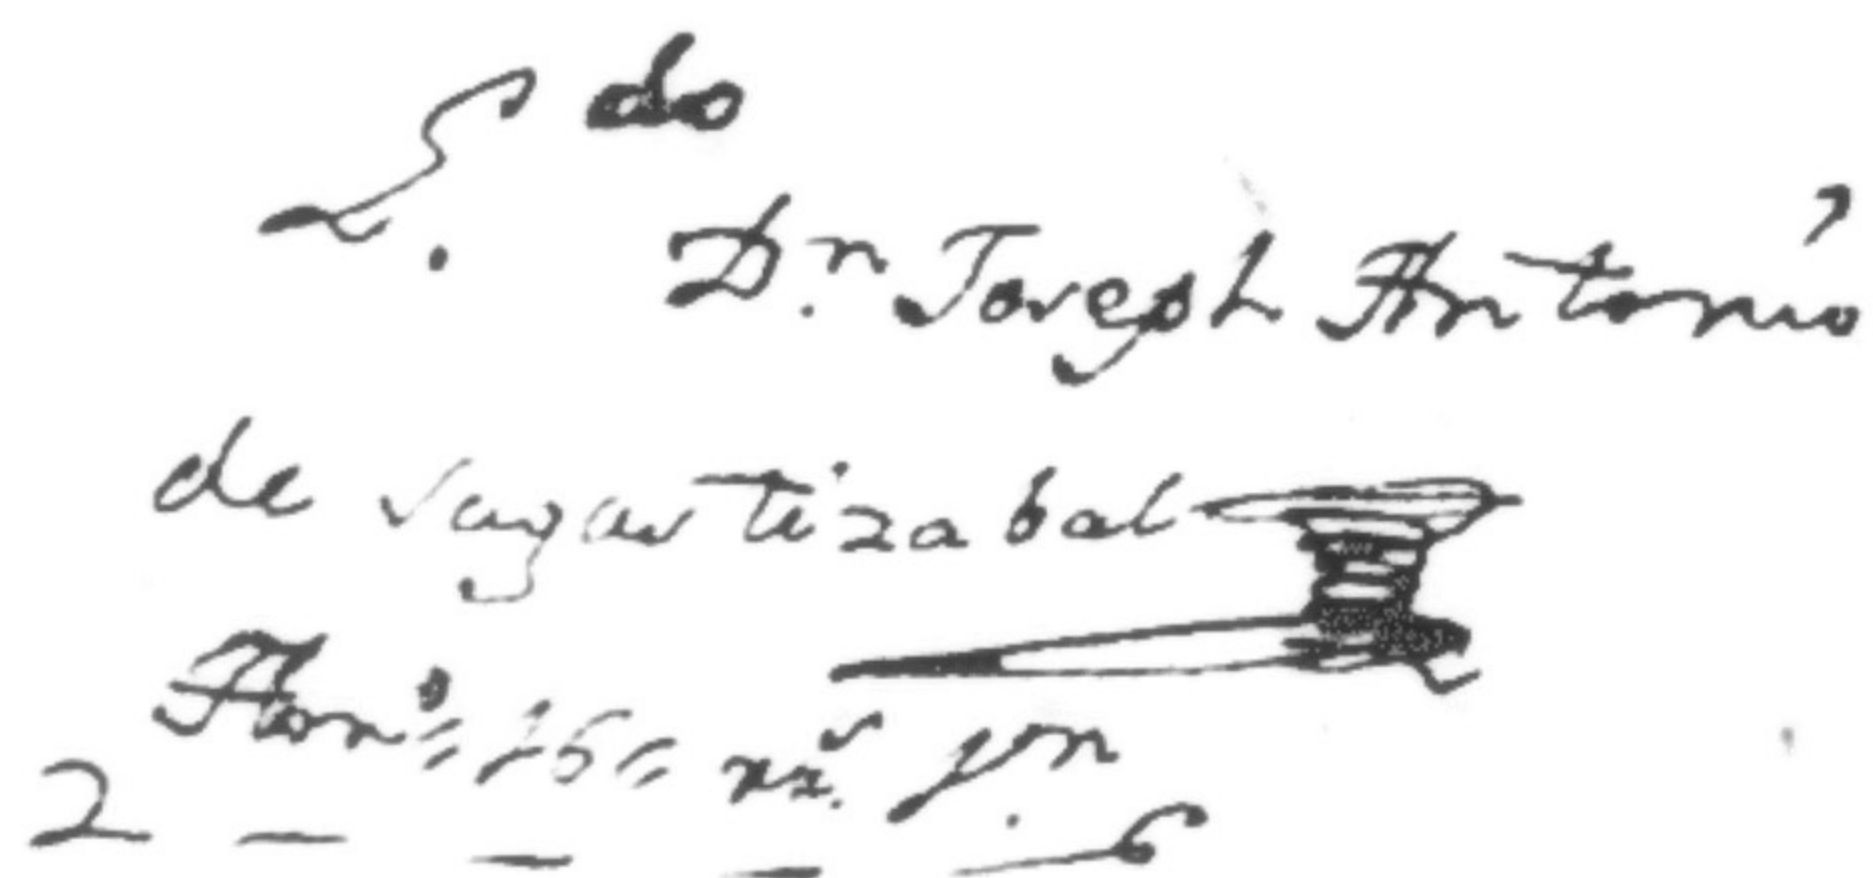 L.do
D.n Joseph Antonio
de sagastizabal
Hon.s 16 rr.s pn
2 — — — — 6